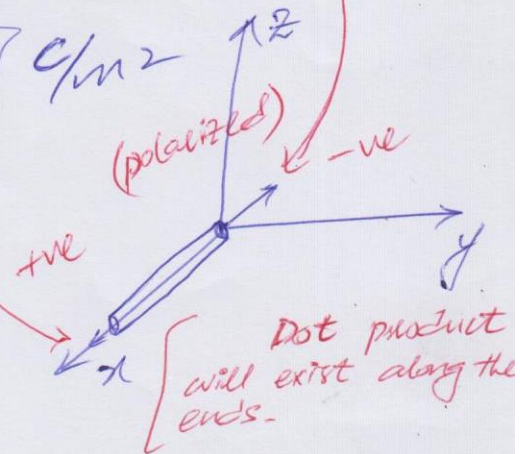 C/m2
z
(polarized)
-ve
+ve
y
x
Dot product
will exist along the
ends.